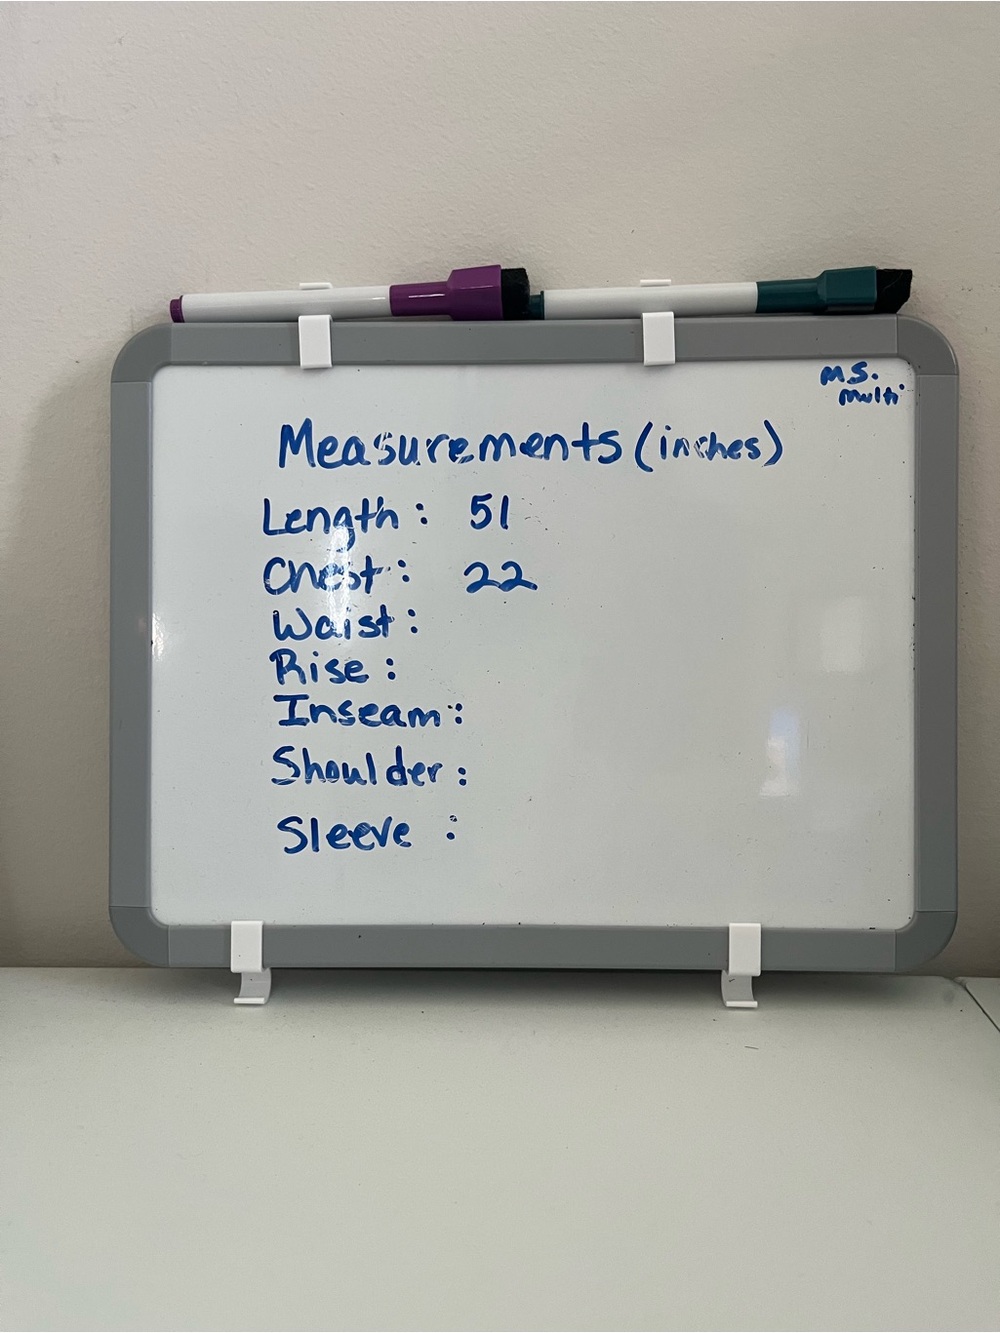 M.S.
Multi
Measurements (inches)
Length: 51
Chest: 22
Waist:
Rise:
Inseam:
Shoulder:
Sleeve :